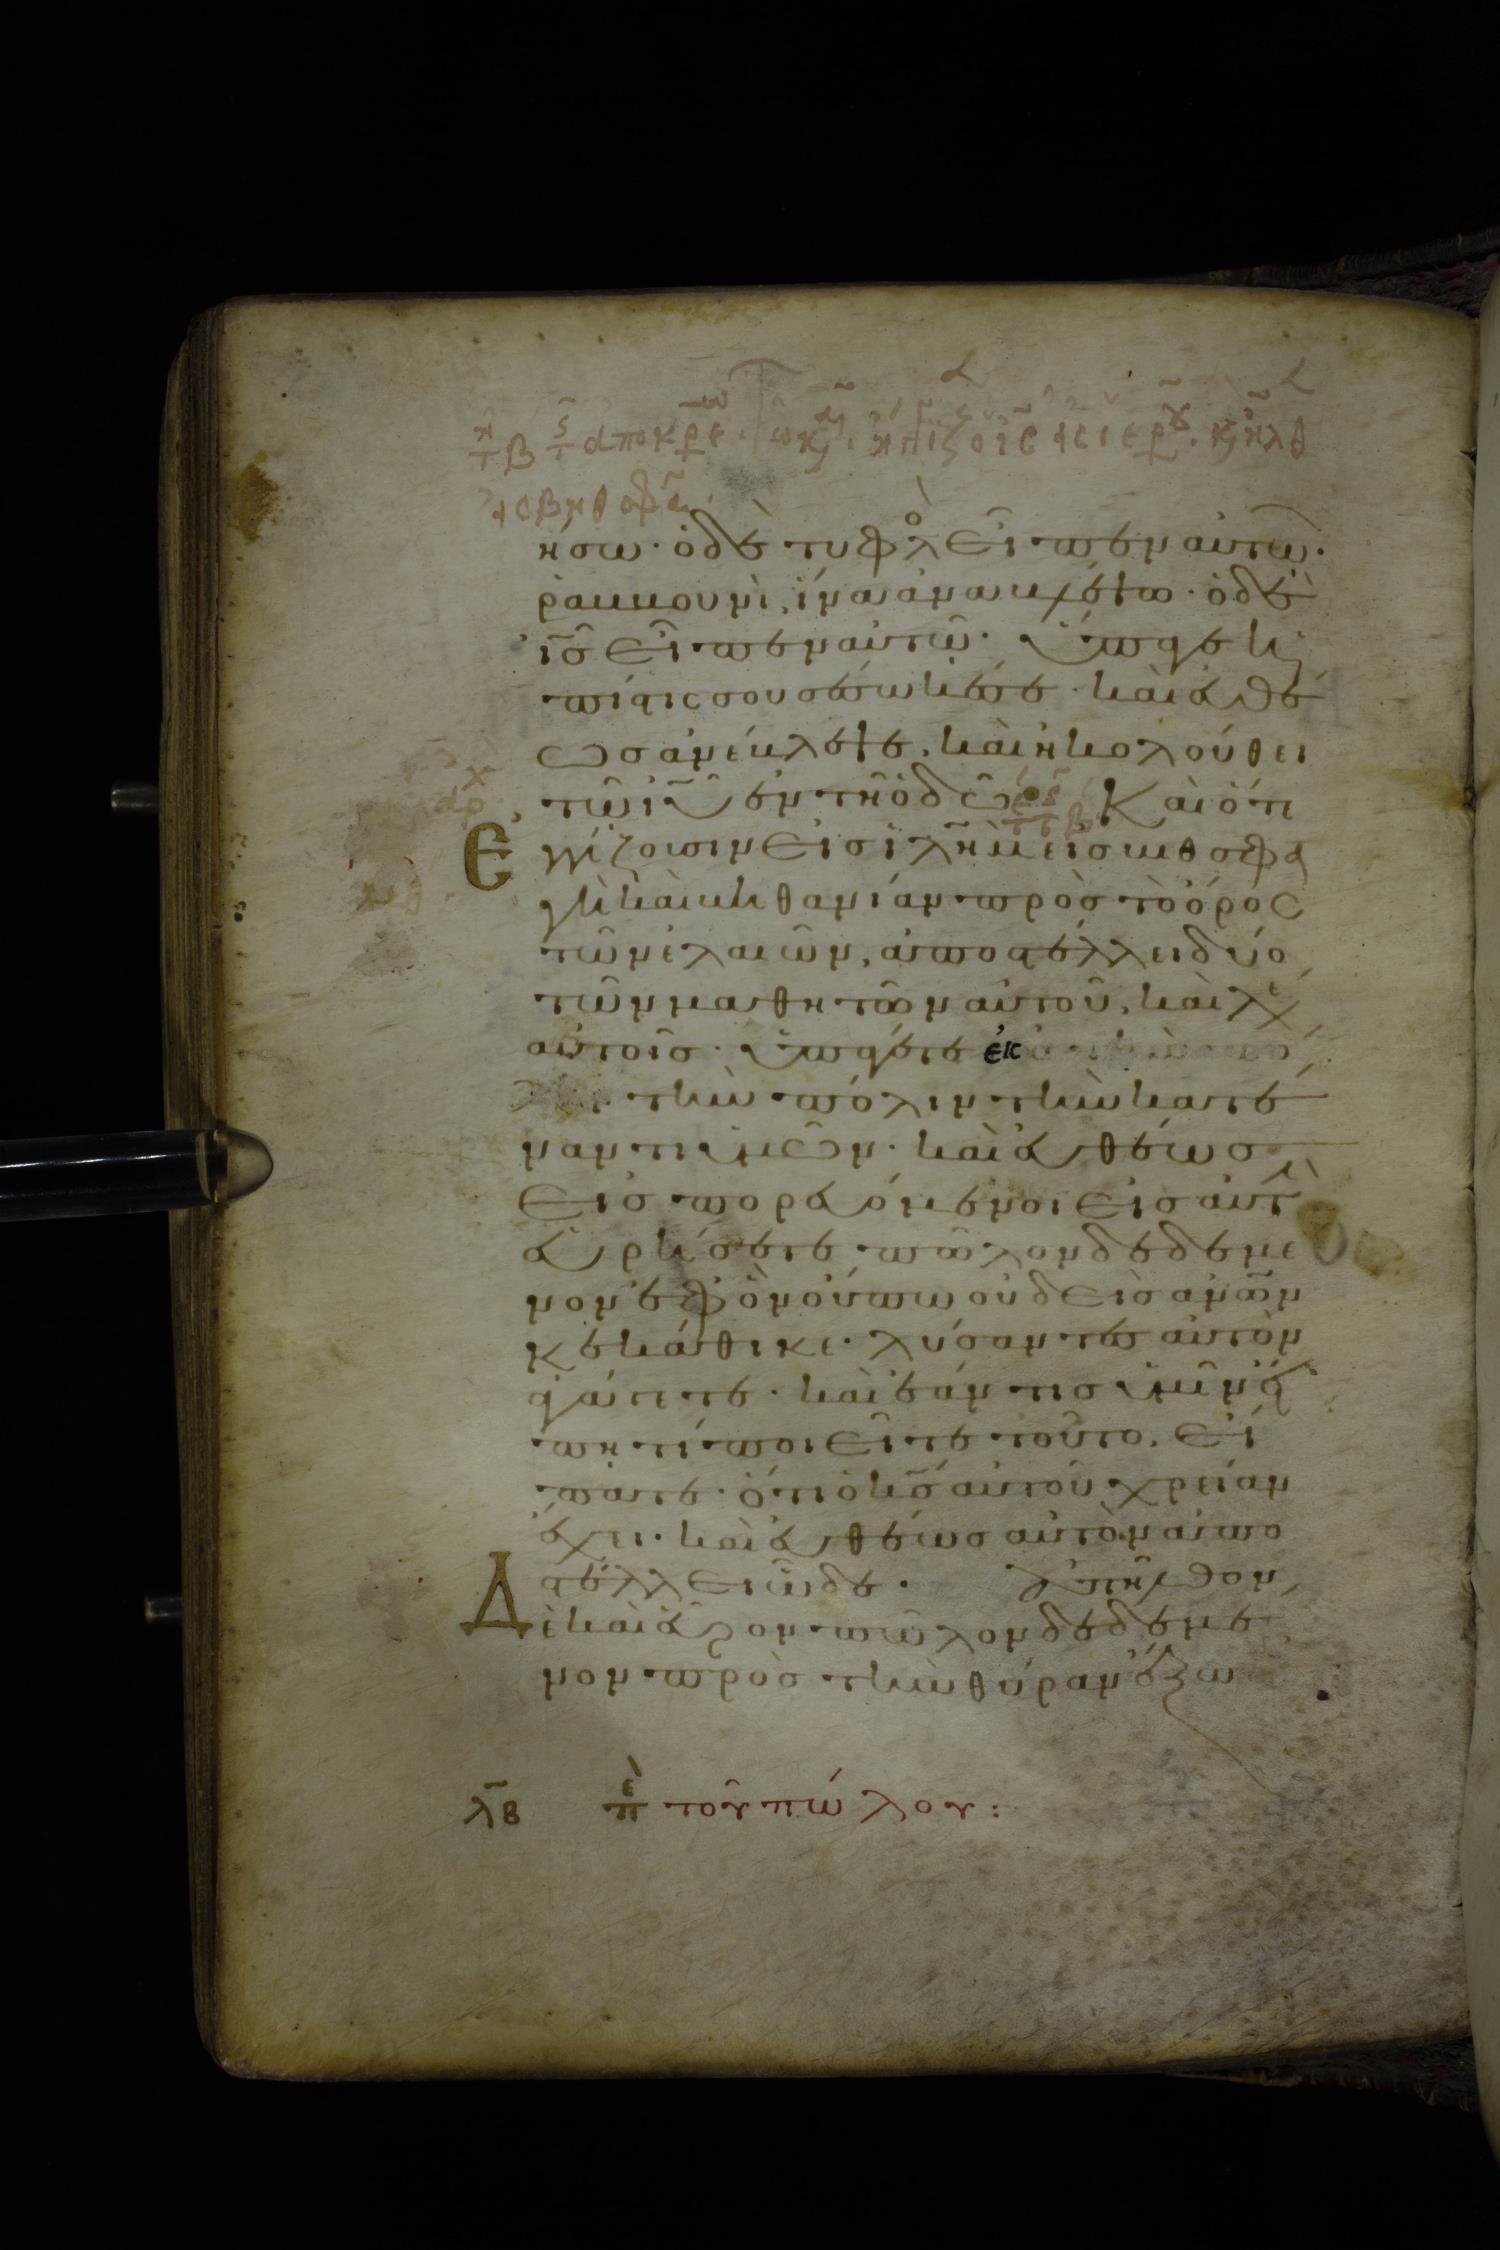 ήσω· ὁ δὲ τυφλὸ εἶπεν αὐτῶ·
ραββουνὶ, ἵνα ἀναβλέψω· ὁ δὲ
ἰς εἶπεν αὐτῶ· ὕπαγε ἡ
πίστις σου σέσωκέ σε· καὶ εὐθέ
ως ἀνέβλεψε, καὶ ἠκολούθει
τῶ ἰυ ἐν τῆ ὁδῶ Καὶ ὅτε
ἐγγίζουσιν εἰς ἱλημ εἰς βηθσφα
γὴ καὶ βηθανίαν πρὸς τὸ ὄρος
τῶν ἐλαιῶν, ἀποστέλλει δύο
τῶν μαθητῶν αὐτοῦ, καὶ λέ
αὐτοῖς· ὑπάγετε εἰς
τὴν πόλιν τὴν κατέ
ναντι ὑμῶν· καὶ εὐθέως
εἰσπορευόμενοι εἰς αὐτὴ
εὑρήσετε πῶλον δεδεμέ
νον ἐφ ὃν οὔπω οὐδεὶς ἀνων
κεκάθικε· λύσαντες αὐτὸν
ἀγάγετε· καὶ ἐάν τις ὑμῖν εἴ
πη τί ποιεῖτε τοῦτο, εἴ
πατε· ὅτι ὁ κς αὐτοῦ χρείαν
ἔχει· καὶ εὐθέως αὐτὸν ἀπο
στέλλει ὧδε· Ἀπῆλθον
Δὲ καὶ εὗρον πῶλον δεδεμέ
νον πρὸς τὴν θύραν ἔξω
λβ πε τοῦ πώλου: